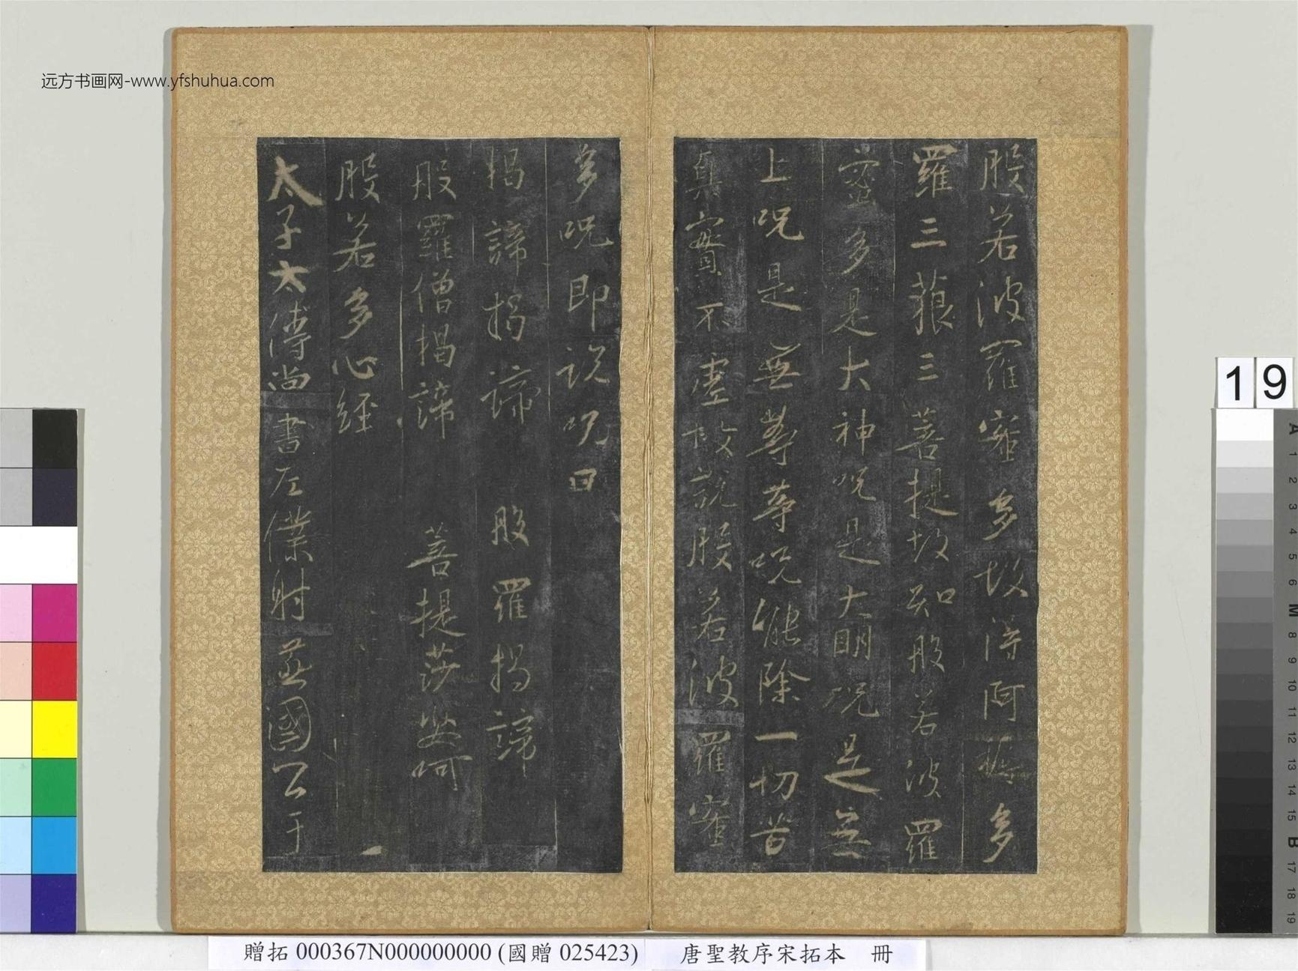 远方书画网-www.yfshuhua.com
般若波羅蜜多故得阿耨多
羅三藐三菩提故知般若波羅
蜜多是大神呪是大明呪是無
上呪是無等等呪能除一切苦
真實不虛故說般若波羅蜜
多呪即說呪曰
揭諦揭諦 般羅揭諦
般羅僧揭諦 菩提莎婆呵
般若多心經
太子太傅尚書左僕射燕國公于
19
A 1 2 3 4 5 6 M 8 9 10 11 12 13 14 15 B 17 18 19
贈拓 000367N000000000 (國贈 025423) 唐聖教序宋拓本 冊